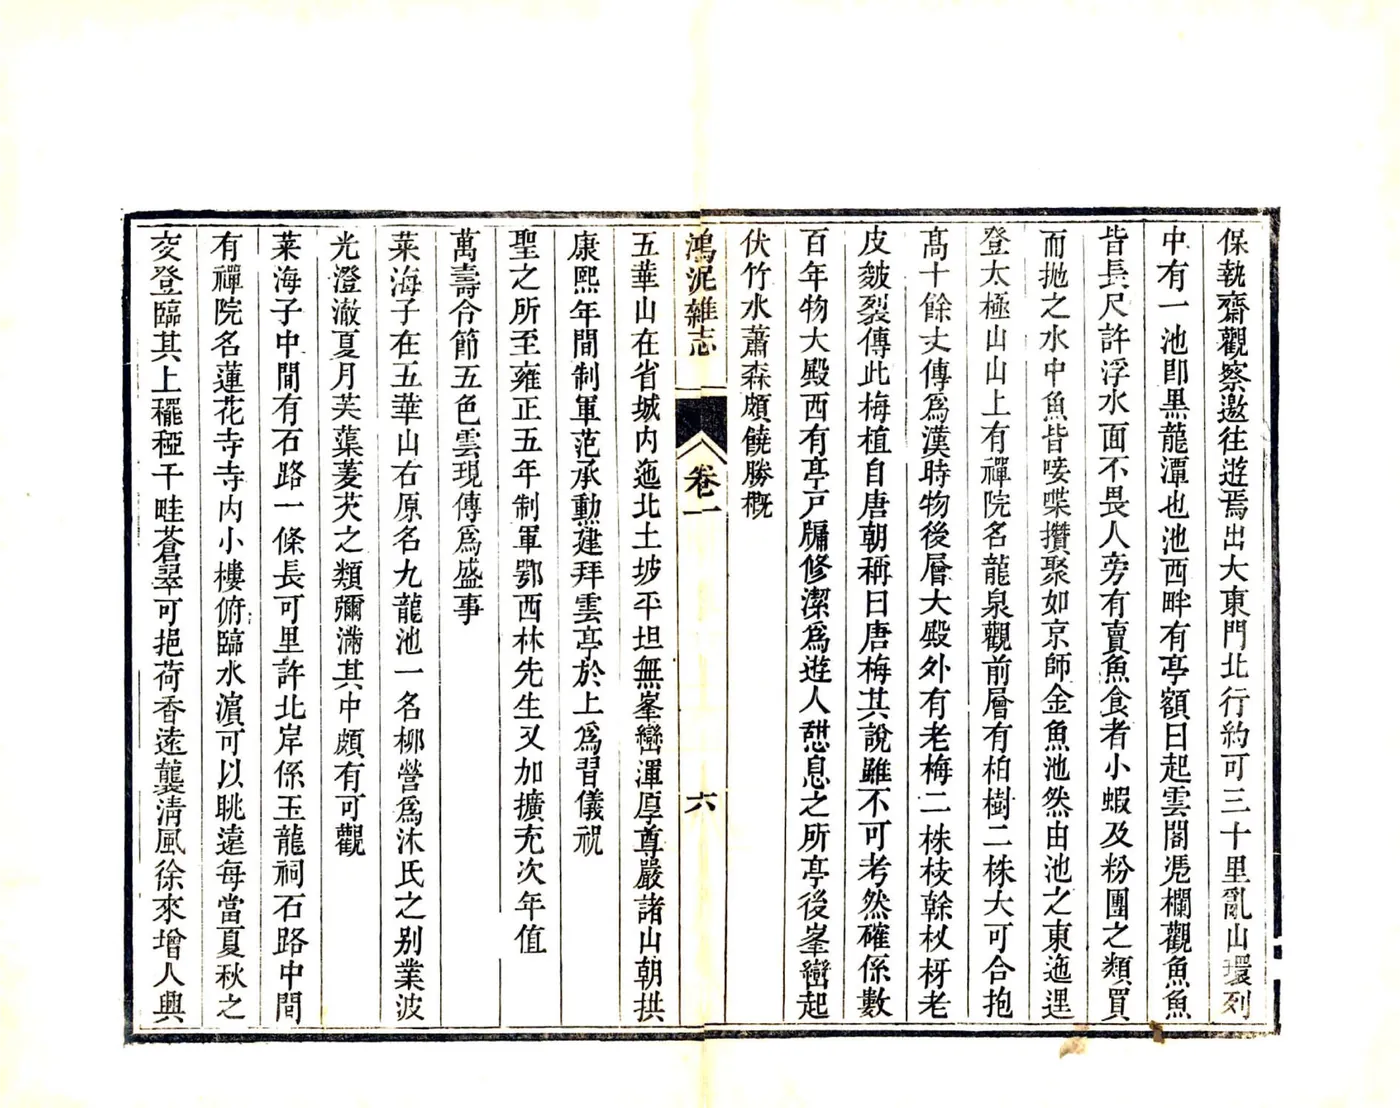 保執齋觀察邀往遊焉出大東門北行約可三十里亂山環列
中有一池卽黑龍潭也池西畔有亭額曰起雲閣凭欄觀魚魚
皆長尺許浮水面不畏人旁有賣魚食者小蝦及粉團之類買
而拋之水中魚皆唼喋攢聚如京師金魚池然由池之東迤邐
登太極山山上有禪院名龍泉觀前層有柏樹二株大可合抱
高十餘丈傳爲漢時物後層大殿外有老梅二株枝榦杈枒老
皮皴裂傳此梅植自唐朝稱曰唐梅其說雖不可考然確係數
百年物大殿西有亭戸牖修潔爲遊人憇息之所亭後峯巒起
伏竹水蕭森頗饒勝概
鴻泥雜志
卷一
六
五華山在省城内迤北土坡平坦無峯巒渾厚尊嚴諸山朝拱
康熙年間制軍范承勳建拜雲亭於上爲習儀祝
聖之所至雍正五年制軍鄂西林先生又加擴充次年值
萬壽令節五色雲現傳爲盛事
菜海子在五華山右原名九龍池一名柳營爲沐氏之別業波
光澄澈夏月芙蕖菱芡之類彌滿其中頗有可觀
菜海子中間有石路一條長可里許北岸係玉龍祠石路中間
有禪院名蓮花寺寺内小樓俯臨水濵可以眺遠每當夏秋之
交登臨其上䆉稏千畦蒼翠可挹荷香遠襲清風徐來增人興